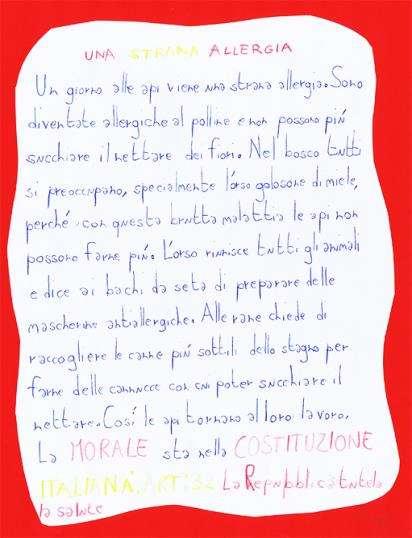 UNA STRANA ALLERGIA
Un giorno alle api viene una strana allergia. Sono
diventate allergiche al polline e non possono più
succhiare il nettare dei fiori. Nel bosco tutti
si preoccupano, specialmente l'orso golosone di miele,
perché con questa brutta malattia le api non
possono farne più. L'orso riunisce tutti gli animali
e dice ai bachi da seta di preparare delle
mascherine antiallergiche. Alle rane chiede di
raccogliere le canne più sottili dello stagno per
farne delle cannucce con cui poter succhiare il
nettare. Così le api tornano al loro lavoro.
La MORALE sta nella COSTITUZIONE
ITALIANA: ART: 32 La Repubblica tutela
la salute